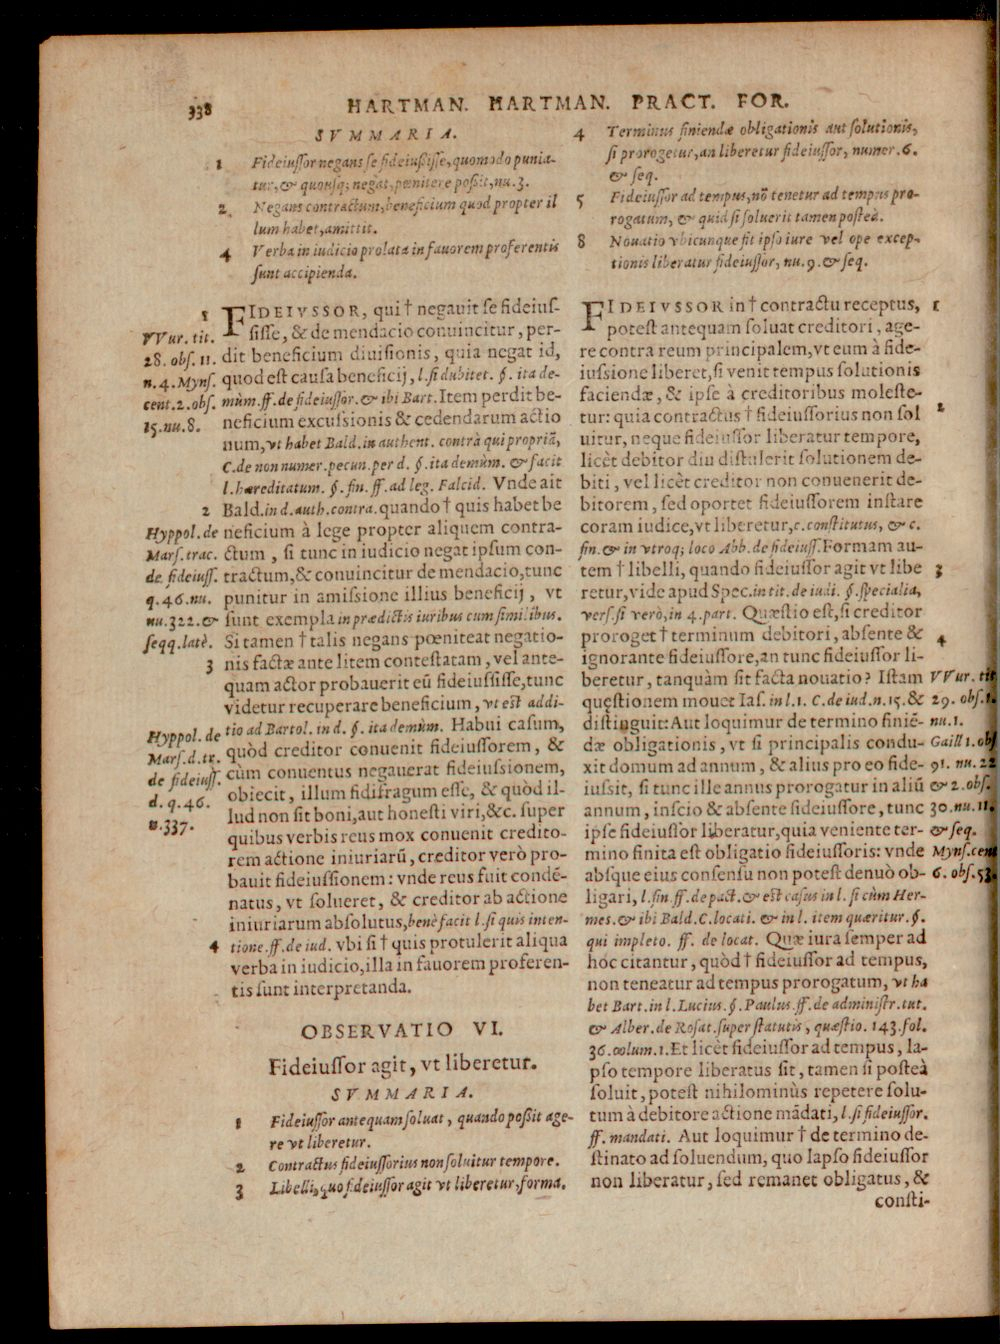 338
HARTMAN. HARTMAN. PRACT. FOR.
SVMMARIA.
1 Fideiussor negans se fideiussisse, quomodo punia-
tur, & quousq; negãt, pœnitere possit, nu. 3.
2 Negans contractum, beneficium quod propter il
lum habet, amittit.
4 Verba in iudicio prolata in fauorem proferentis
sunt accipienda.
1
FIDEIVSSOR, qui † negauit se fideius-
sisse, & de mendacio conuincitur, per-
dit beneficium diuisionis, quia negat id,
quod est causa beneficij, l. si dubitet. §. ita de-
mùm. ff. de fideiussor. & ibi Bart. Item perdit be-
neficium excussionis & cedendarum actio
num, vt habet Bald. in authent. contrà qui propriã,
C. de non numer. pecun. per d. §. ita demùm. & facit
l. hæreditatum. §. fin. ff. ad leg. Falcid. Vnde ait
2 Bald. in d. auth. contra. quando † quis habet be
neficium à lege propter aliquem contra-
ctum, si tunc in iudicio negat ipsum con-
tractum, & conuincitur de mendacio, tunc
punitur in amissione illius beneficij, vt
sunt exempla in prædictis iuribus cum similibus.
Si tamen † talis negans pœniteat negatio-
3 nis factæ ante litem contestatam, vel ante-
quam actor probauerit eũ fideiussisse, tunc
videtur recuperare beneficium, vt est addi-
tio ad Bartol. in d. §. ita demùm. Habui casum,
quòd creditor conuenit fideiussorem, &
cùm conuentus negauerat fideiussionem,
obiecit, illum fidifragum esse, & quòd il-
lud non sit boni, aut honesti viri, &c. super
quibus verbis reus mox conuenit credito-
rem actione iniuriarũ, creditor verò pro-
bauit fideiussionem: vnde reus fuit condẽ-
natus, vt solueret, & creditor ab actione
iniuriarum absolutus, benè facit l. si quis inten-
4 tione. ff. de iud. vbi si † quis protulerit aliqua
verba in iudicio, illa in fauorem proferen-
tis sunt interpretanda.
VVur. tit.
28. obs. 11.
n. 4. Myns.
cent. 2. obs.
15. nu. 8.
Hyppol. de
Mars. trac.
de fideiuss.
q. 46. nu.
nu. 322. &
seqq. latè.
Hyppol. de
Mars. d. tr.
de fideiuss.
d. q. 46.
n. 337.
OBSERVATIO VI.
Fideiussor agit, vt liberetur.
SVMMARIA.
1 Fideiussor antequam soluat, quando possit age-
re vt liberetur.
2 Contractus fideiussorius non soluitur tempore.
3 Libelli, quo fideiussor agit vt liberetur, forma.
4 Terminus finiendæ obligationis aut solutionis,
si prorogetur, an liberetur fideiussor, numer. 6.
& seq.
5 Fideiussor ad tempus, nõ tenetur ad tempus pro-
rogatum, & quid si soluerit tamen posteà.
8 Nouatio vbicunque fit ipso iure vel ope excep-
tionis liberatur fideiussor, nu. 9. & seq.
FIDEIVSSOR in † contractu receptus, 1
potest antequam soluat creditori, age-
re contra reum principalem, vt eum à fide-
iussione liberet, si venit tempus solutionis
faciendæ, & ipse à creditoribus moleste-
tur: quia contractus † fideiussorius non sol 2
uitur, neque fideiussor liberatur tempore,
licèt debitor diu distulerit solutionem de-
biti, vel licèt creditor non conuenerit de-
bitorem, sed oportet fideiussorem instare
coram iudice, vt liberetur, c. constitutus, & c.
fin. & in vtroq; loco Abb. de fideiuss. Formam au-
tem † libelli, quando fideiussor agit vt libe 3
retur, vide apud Spec. in tit. de iudi. §. specialia,
vers. si verò, in 4. part. Quæstio est, si creditor
proroget † terminum debitori, absente & 4
ignorante fideiussore, an tunc fideiussor li-
beretur, tanquàm sit facta nouatio? Istam
quęstionem mouet Ias. in l. 1. C. de iud. n. 15. &
distinguit: Aut loquimur de termino finiẽ-
dæ obligationis, vt si principalis condu-
xit domum ad annum, & alius pro eo fide-
iussit, si tunc ille annus prorogatur in aliũ
annum, inscio & absente fideiussore, tunc
ipse fideiussor liberatur, quia veniente ter-
mino finita est obligatio fideiussoris: vnde
absque eius consensu non potest denuò ob-
ligari, l. fin. ff. de pact. & est casus in l. si cùm Her-
mes. & ibi Bald. C. locati. & in l. item quæritur. §.
qui impleto. ff. de locat. Quæ iura semper ad
hoc citantur, quòd † fideiussor ad tempus,
non teneatur ad tempus prorogatum, vt ha
bet Bart. in l. Lucius. §. Paulus. ff. de administr. tut.
& Alber. de Rosat. super statutis, quæstio. 143. fol.
36. colum. 1. Et licèt fideiussor ad tempus, la-
pso tempore liberatus sit, tamen si posteà
soluit, potest nihilominùs repetere solu-
tum à debitore actione mãdati, l. si fideiussor.
ff. mandati. Aut loquimur † de termino de-
stinato ad soluendum, quo lapso fideiussor
non liberatur, sed remanet obligatus, &
consti-
VVur. tit.
29. obs. 1.
nu. 1.
Gaill 1. obs
91. nu. 22
& 2. obs.
30. nu. 11.
& seq.
Myns. cent
6. obs. 53.